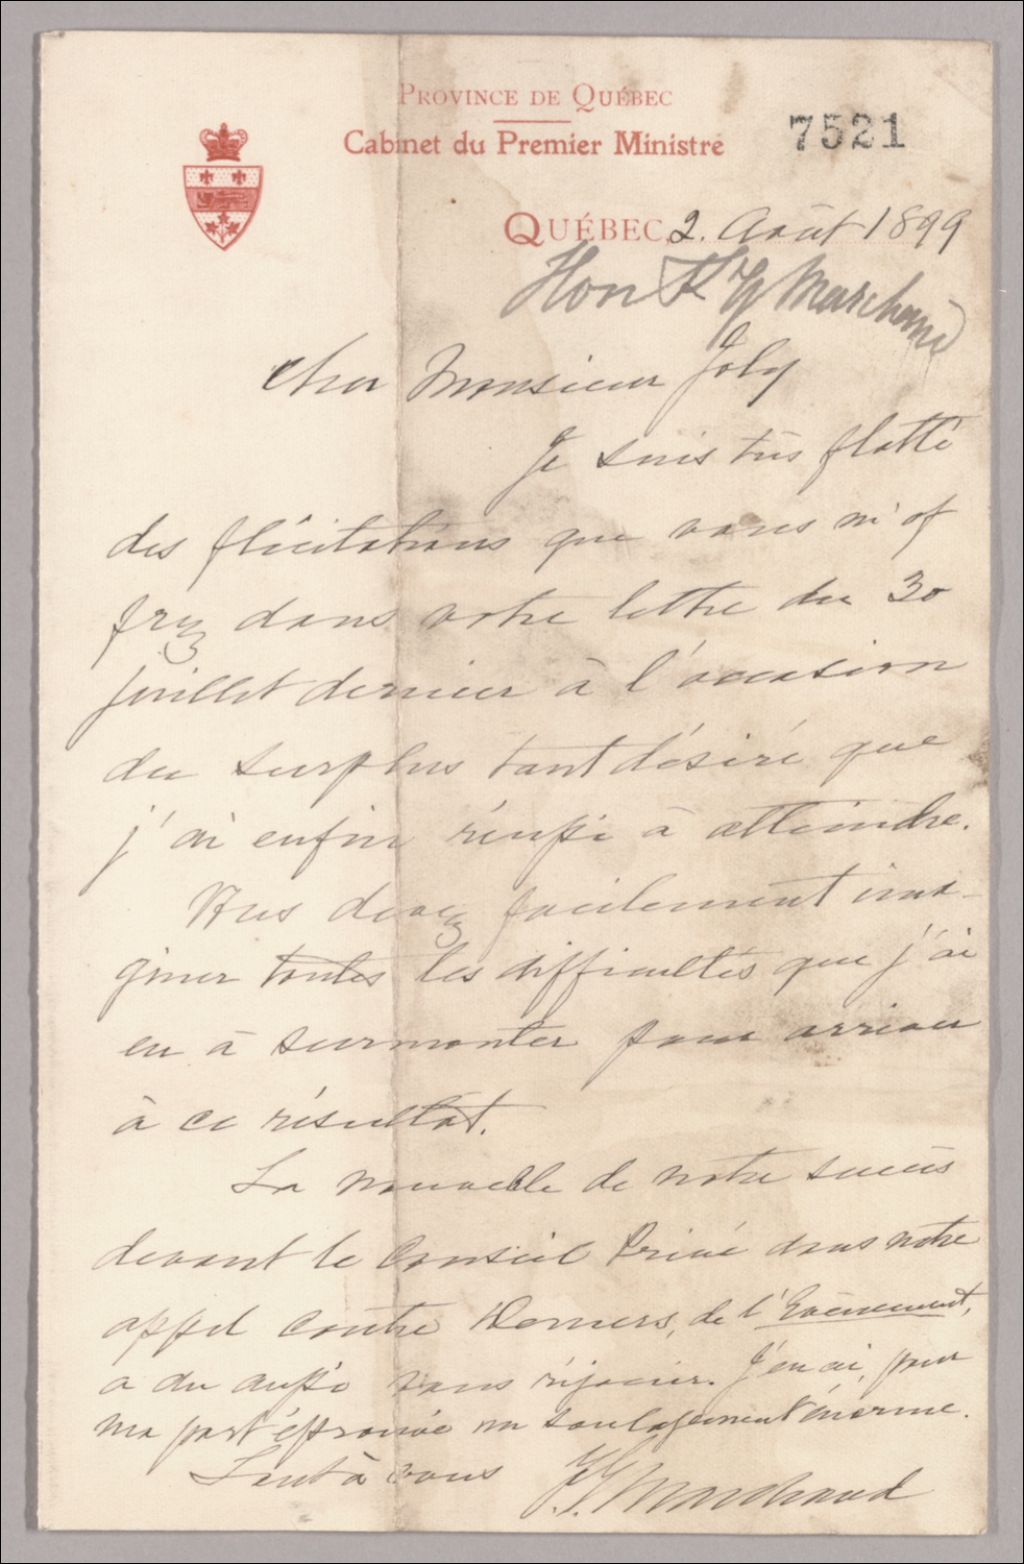 PROVINCE DE QUÉBEC
Cabinet du Premier Ministre
7521
QUÉBEC, 2. Août 1899
Hon F G Marchand
Cher Monsieur Joly
Je suis très flatté
des félicitations que vous m'of
frez dans votre lettre du 30
juillet dernier à l'occasion
du surplus tant désiré que
j'ai enfin réussi à atteindre.
Vous devez facilement ima-
giner toutes les difficultés que j'ai
eu à surmonter pour arriver
à ce résultat.
La nouvelle de notre succès
devant le Conseil Privé dans notre
appel contre Demers, de l'Evènement,
a du aussi vous réjouir. J'en ai, pour
ma part éprouvé un soulagement énorme.
Tout à vous
F. G. Marchand